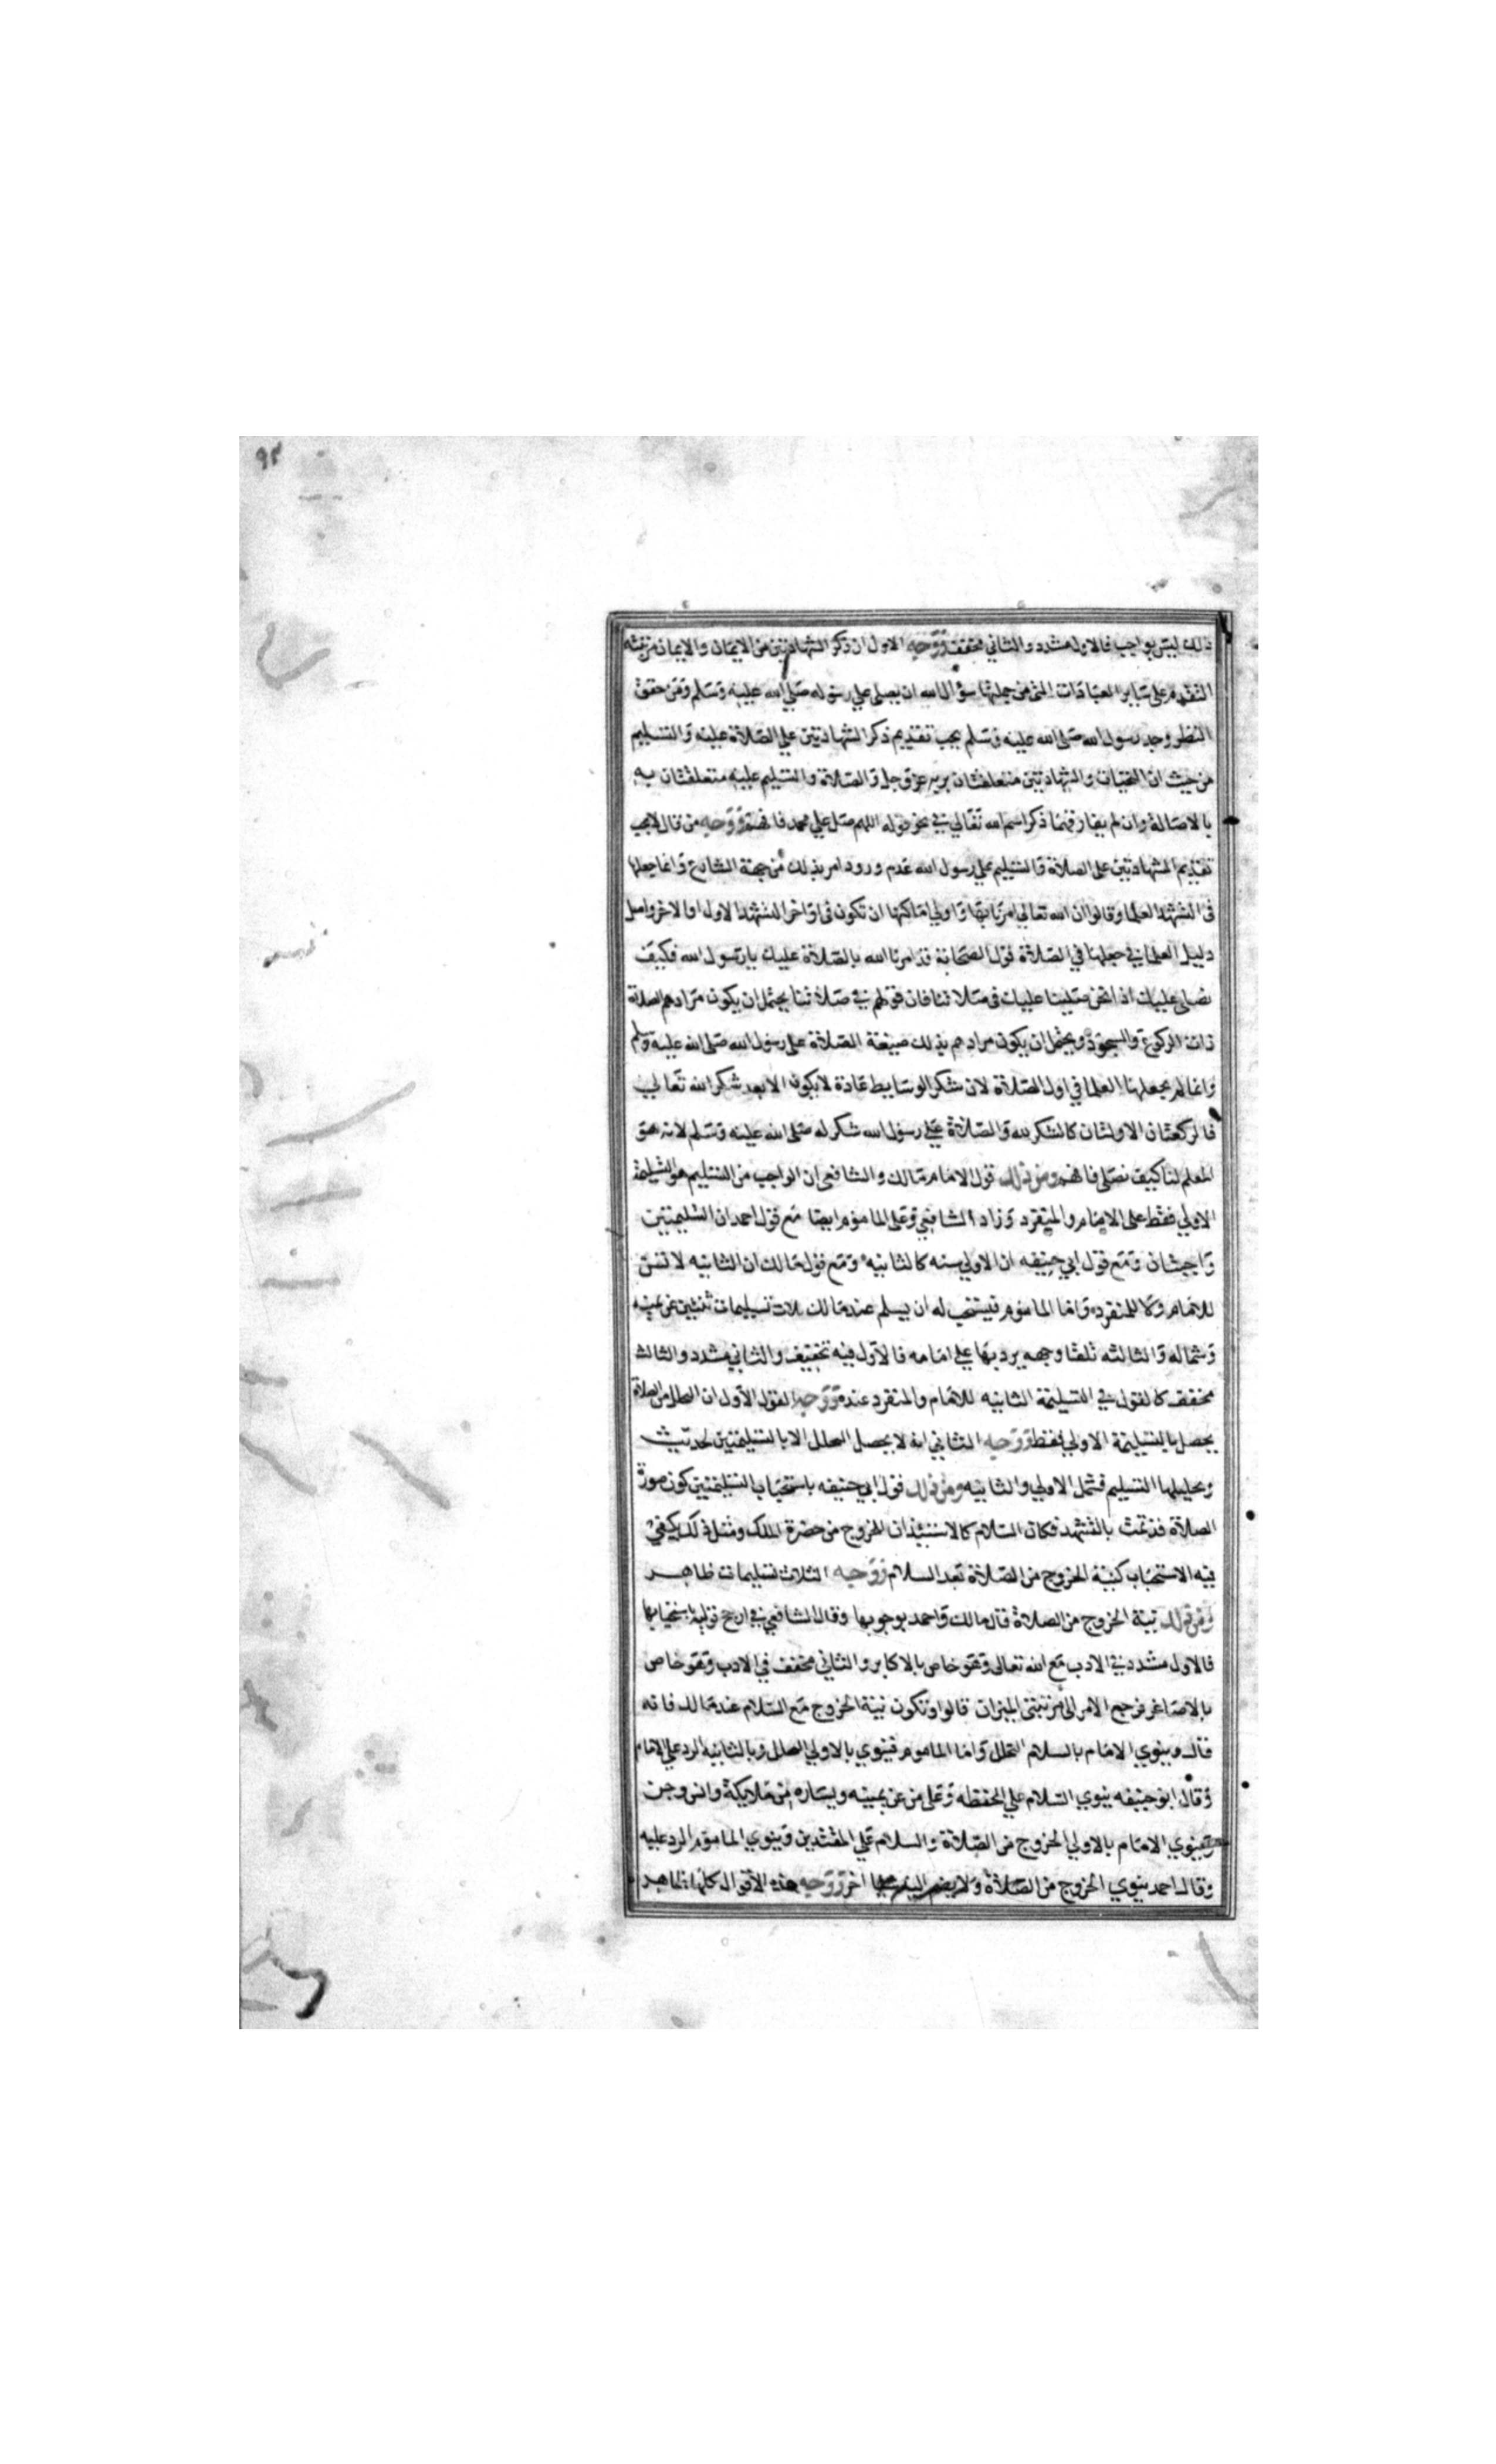 ٩٢
ذلك ليس بواجب فالاول مشدد والثاني مخفف ووجه الاول ان ذكر الشهادتين من الايمان والايمان مرتبته
التقدم على ساير العبادات التي من جملتها سؤال الله ان يصلي علي رسوله صلي الله عليه وسلم ومن حقق
النظر وجد رسول الله صلى الله عليه وسلم يحب تقديم ذكر الشهادتين علي الصلاة عليه والتسليم
من حيث ان التحيات والشهادتين متعلقتان بربه عز وجل والصلاة والتسليم عليه متعلقتان به
بالاصالة وان لم يفارقهما ذكر اسم الله تعالي في نحو قوله اللهم صل علي محمد فافهم ووجه من قال لا يجب
تقديم الشهادتين على الصلاة والتسليم علي رسول الله عدم ورود امر بذلك من جهة الشارع وانما جعلها
في التشهد العلما وقالوا ان الله تعالي امرنا بها واولي اماكنها ان تكون في اواخر التشهد الاول او الاخر واصل
دليل العلما في جعلها في الصلاة قول الصحابة قد امرنا الله بالصلاة عليك يا رسول الله فكيف
نصلي عليك اذا نحن صلينا عليك في صلاتنا فان قولهم في صلاتنا يحتمل ان يكون مرادهم الصلاة
ذات الركوع والسجود ويحتمل ان يكون مرادهم بذلك صيغة الصلاة على رسول الله صلى الله عليه وسلم
وانما لم يجعلها العلما في اول الصلاة لان شكر الوسايط عادة لا يكون الا بعد شكر الله تعالي
فالركعتان الاولتان كالشكر لله والصلاة علي رسول الله شكر له صلى الله عليه وسلم لانه هو
المعلم لنا كيف نصلي فافهم ومن ذلك قول الامام مالك والشافعي ان الواجب من التسليم هو التسليمة
الاولي فقط على الامام والمنفرد وزاد الشافعي وعلى الماموم ايضا مع قول احمد ان التسليمتين
واجبتان ومع قول ابي حنيفه ان الاولي سنه كالثانيه ومع قول مالك ان الثانيه لا تسن
للامام ولا للمنفرد واما الماموم فيستحب له ان يسلم عند مالك ثلاث تسليمات ثنتين عن يمينه
وشماله والثالثه تلقا وجهه يرد بها علي امامه فالاول فيه تخفيف والثاني مشدد والثالث
مخفف كالقول في التسليمة الثانيه للامام والمنفرد عنده ووجه القول الاول ان التحلل من الصلاة
يحصل بالتسليمة الاولي فقط ووجه الثاني انه لا يحصل التحلل الا بالتسليمتين لحديث
وتحليلها التسليم فشمل الاولي والثانيه ومن ذلك قول ابي حنيفه باستحباب التسليمتين كون صورة
الصلاة قد تمت بالتشهد فكان السلام كالاستيذان للخروج من حضرة الملك ومثل ذلك يكفي
فيه الاستحباب كنية الخروج من الصلاة بعد السلام ووجه الثلاث تسليمات ظاهر
ومن ذلك نية الخروج من الصلاة قال مالك واحمد بوجوبها وقال الشافعي في ارجح قوليه باستحبابها
فالاول مشدد في الادب مع الله تعالى وهو خاص بالاكابر والثاني مخفف في الادب وهو خاص
بالاصاغر فرجع الامر الى مرتبتي الميزان قالوا وتكون نية الخروج مع السلام عند مالك فانه
قال وينوي الامام بالسلام التحلل واما الماموم فينوي بالاولي التحلل وبالثانية الرد علي الامام
وقال ابو حنيفه ينوي السلام علي الحفظه وعلى من عن يمينه ويساره من ملايكة وانس وجن
وينوي الامام بالاولي الخروج من الصلاة والسلام علي المقتدين وينوي الماموم الرد عليه
وقال احمد ينوي الخروج من الصلاة ولا يضم اليه اخر ووجه هذه الاقوال كلها ظاهر